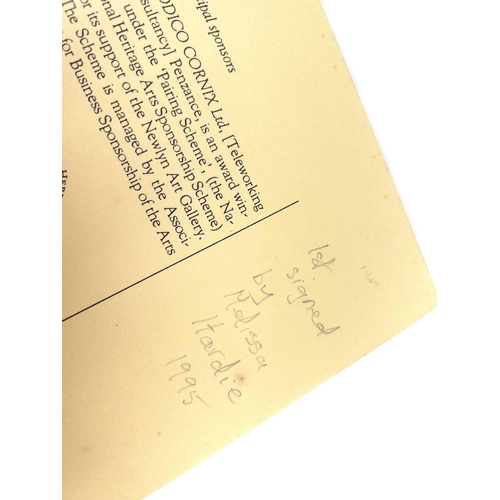 cipal sponsors
ODICO CORNIX Ltd, [Teleworking
nsultancy] Penzance, is an award win-
under the 'Pairing Scheme', (the Na-
onal Heritage Arts Sponsorship Scheme)
or its support of the Newlyn Art Gallery.
The Scheme is managed by the Associ-
for Business Sponsorship of the Arts
HER
1st
signed
by
Melissa
Hardie
1995